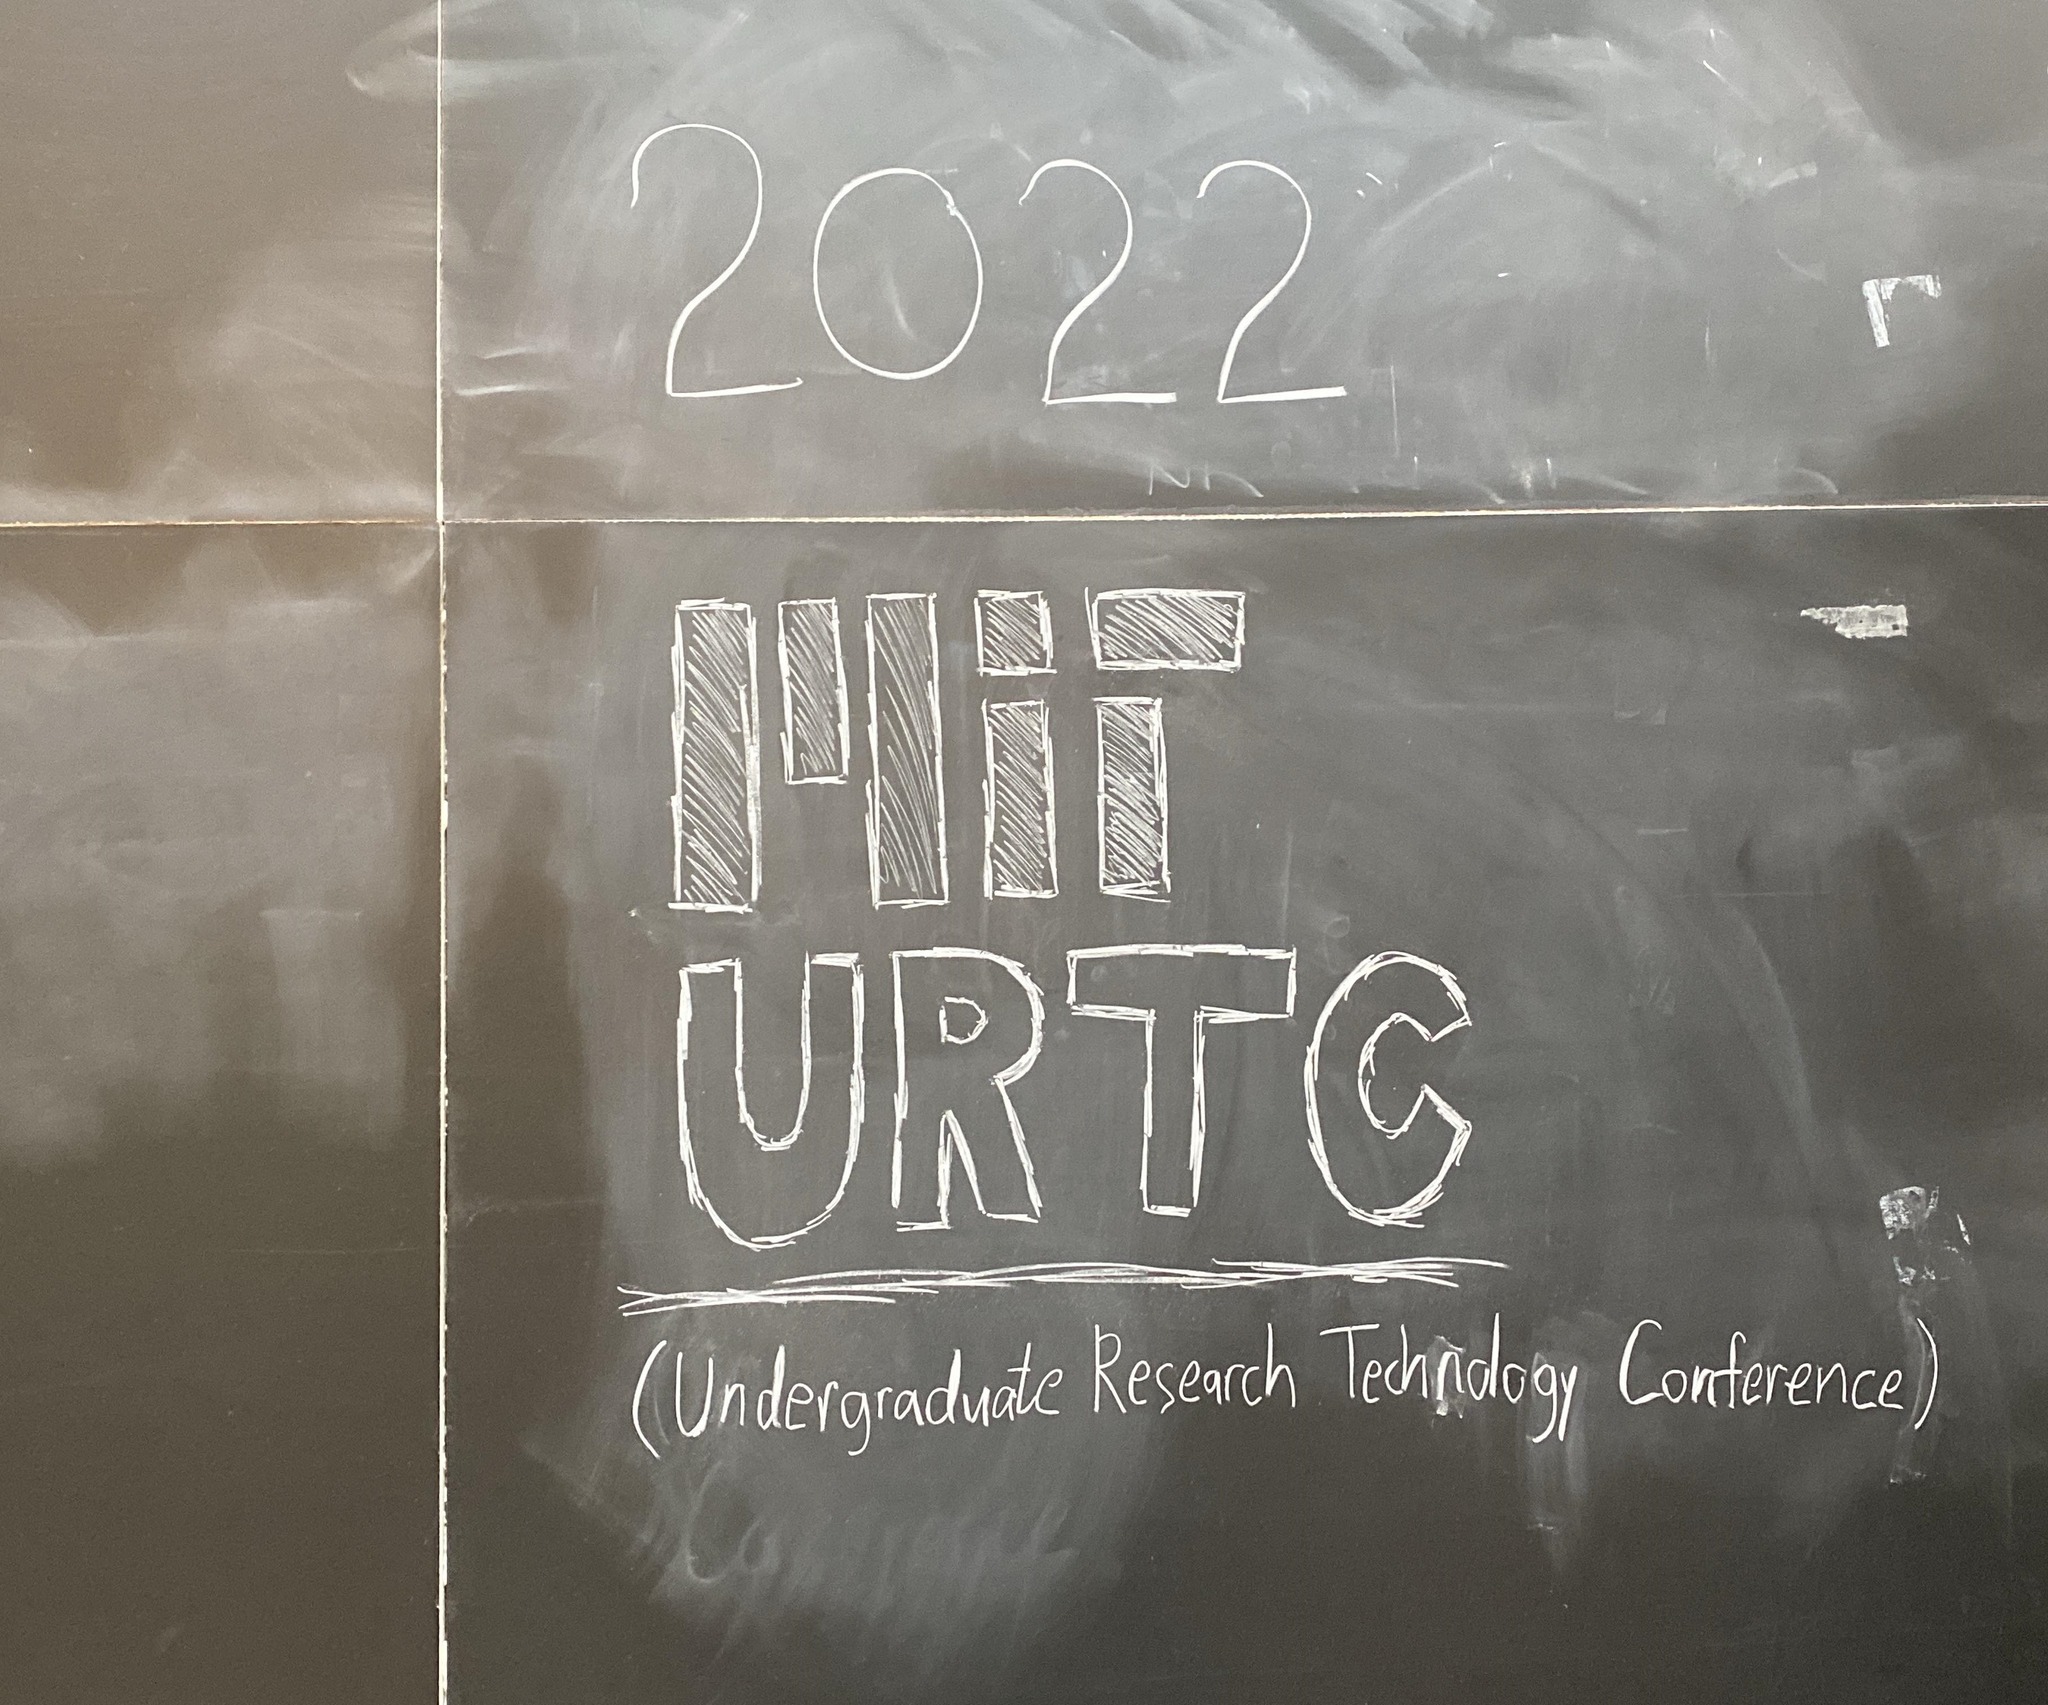 2022
MiT
URTC
(Undergraduate Research Technology Conference)